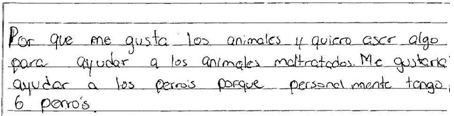 Por que me gusta los animales y quiero aser algo
para ayudar a los animales maltratados. Me gustaria
ayudar a los perros porque personal mente tengo
6 perros.